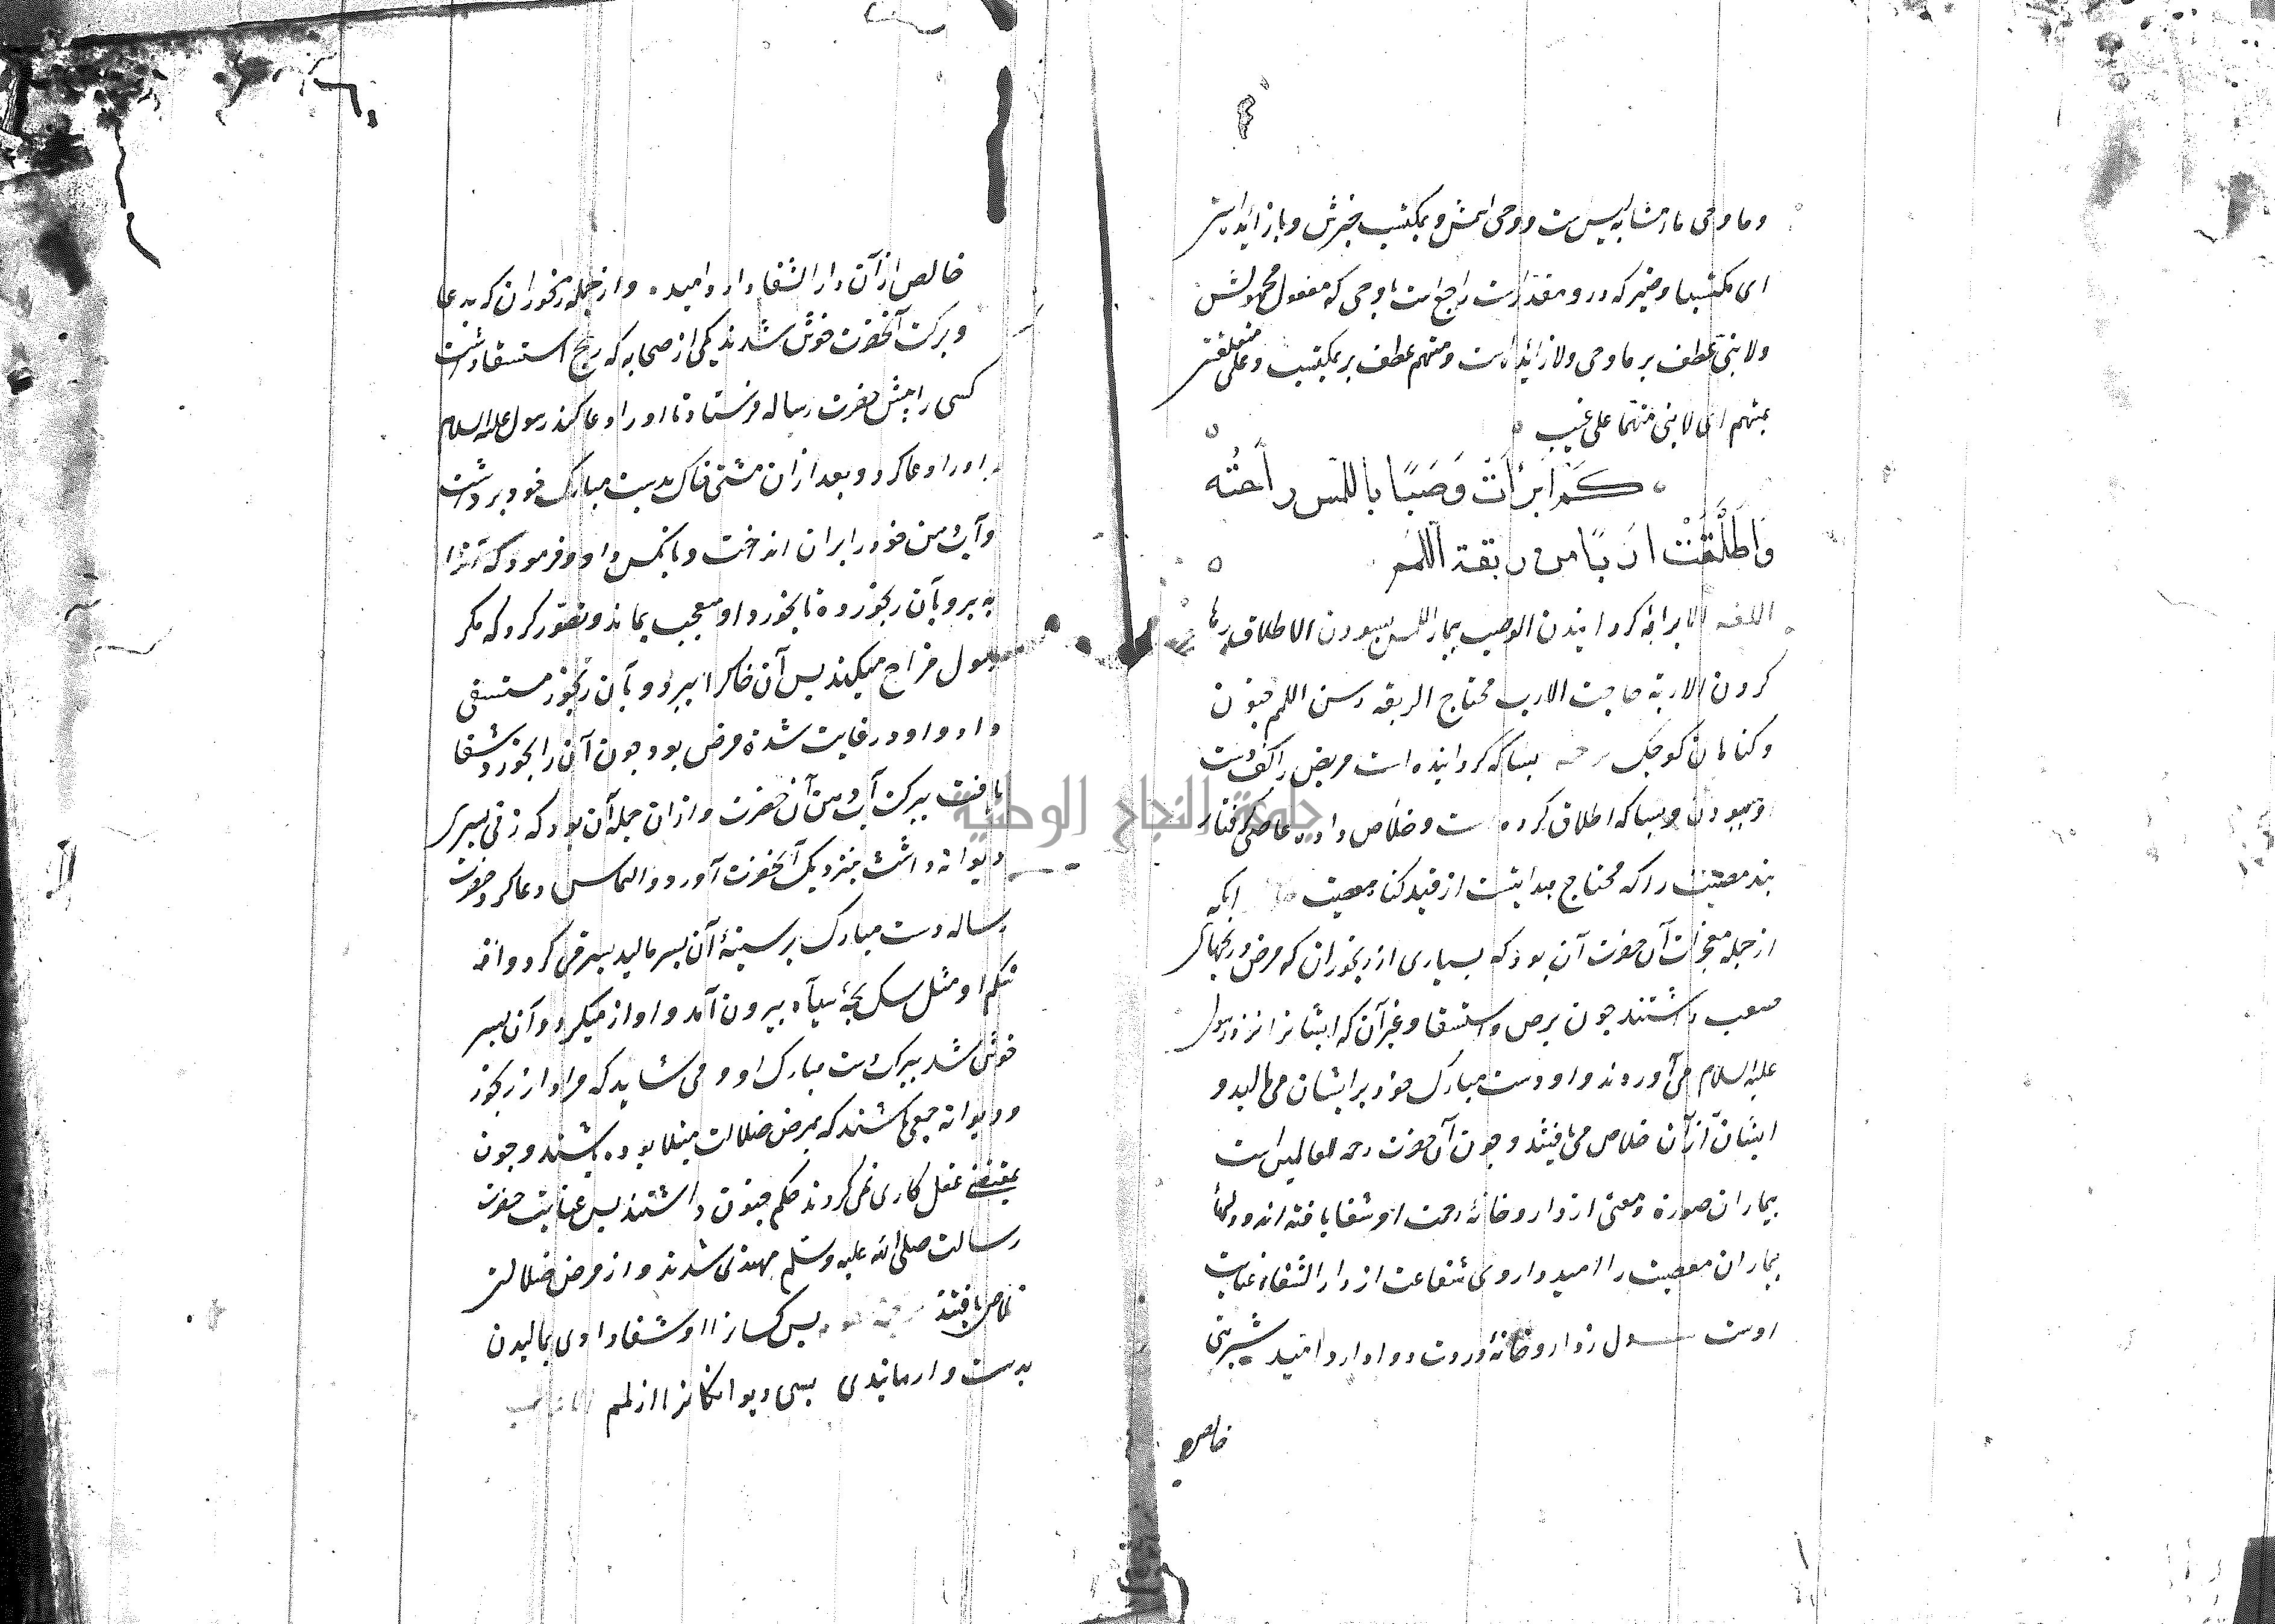 وما وحی ما مشابه لیس است ووحی اسمش وبمکتسب خبرش وبا زائد است
ای مکتسبا وضمیر که درو مقدر است راجع است با وحی که مفعول محمولش
ولا نبی عطف بر ما وحی ولا زائده است ومتهم عطف بر بمکتسب وعلی متعلقش
بمتهم ای لا نبی متهما علی غیب
كَمْ اَبْرَأَتْ وَصَبًا باللمس راحَتُه
وَاَطْلَقَتْ اَرِبًا من ربقة اللمم
اللغة الابراء به کردانیدن الوصب بیمار اللمس بسودن الاطلاق رها
کردن الاربة حاجت الارب محتاج الربقه رسن اللمم جنون
وکناهان کوچک بسا که به کردانیده است مریض را کف دست
وبسودن وبسا که اطلاق کرده است وخلاص داده عاصی کرفتار
بند معصیت را که محتاج هدایتست از قید کناه معصیت انکه
از جمله معجزات آن حضرت آن بود که بسیاری از رنجوران که مرض ورنجهای
صعب داشتند چون برص واستسقا وغیر آن که ایشانرا نزد رسول
علیه السلام می آوردند واو دست مبارک خود بر ایشان می مالید و
ایشان از آن خلاص می یافتند وچون آن حضرت رحمة للعالمین است
بیماران صورة ومعنی از داروخانهٔ رحمت او شفا یافته اند ودلهای
بیماران معصیت را امید داروی شفاعت از دار الشفاء عنایت
اوست دل ز داروخانهٔ دردت دوا دارد امید شربتی
خالص
خالص از آن دار الشفا دارد امید ٠ واز جمله رنجوران که بدعا
وبرکت آنحضرت خوش شدند یکی از صحابه که رنج استسقا داشت
کسی را پیش حضرت رساله فرستاد تا او را دعا کند رسول علیه السلام
او را دعا کرد وبعد از آن مشتی خاک بدست مبارک خود برداشت
وآب دهن خود را بران انداخت وبا نکس داد وفرمود که اینرا
به بر وبآن رنجور ده تا بخورد او متعجب بماند وتصور کرد که مکر
رسول مزاح میکند پس آن خاکرا ببرد وبآن رنجور مستسقی
داد واو در غایت شدة مرض بود چون آن را بخورد شفا
یافت ببرکت آب دهن آن حضرت واز ان جمله آن بود که زنی پسری
دیوانه داشت بنزدیک آنحضرت آورد والتماس دعا کرد حضرت
رساله دست مبارک بر سینهٔ آن پسر مالید پسر قی کرد واز
شکم او مثل سک بچهٔ سیاه بیرون آمد واواز میکرد وآن پسر
خوش شد ببرکت دست مبارک او ومی شاید که مراد از رنجور
ودیوانه جمعی باشند که بمرض ضلالت مبتلا بوده باشند وچون
بمقتضی عقل کاری نمی کردند حکم جنون داشتند پس بعنایت حضرت
رسالت صلی الله علیه وسلم مهتدی شدند واز مرض ضلالت
خلاص یافتند پس کسانرا او شفا دادی بمالیدن
بدست وارهانیدی بسی دیوانکانرا از لمم
جامعة النجاح الوطنية